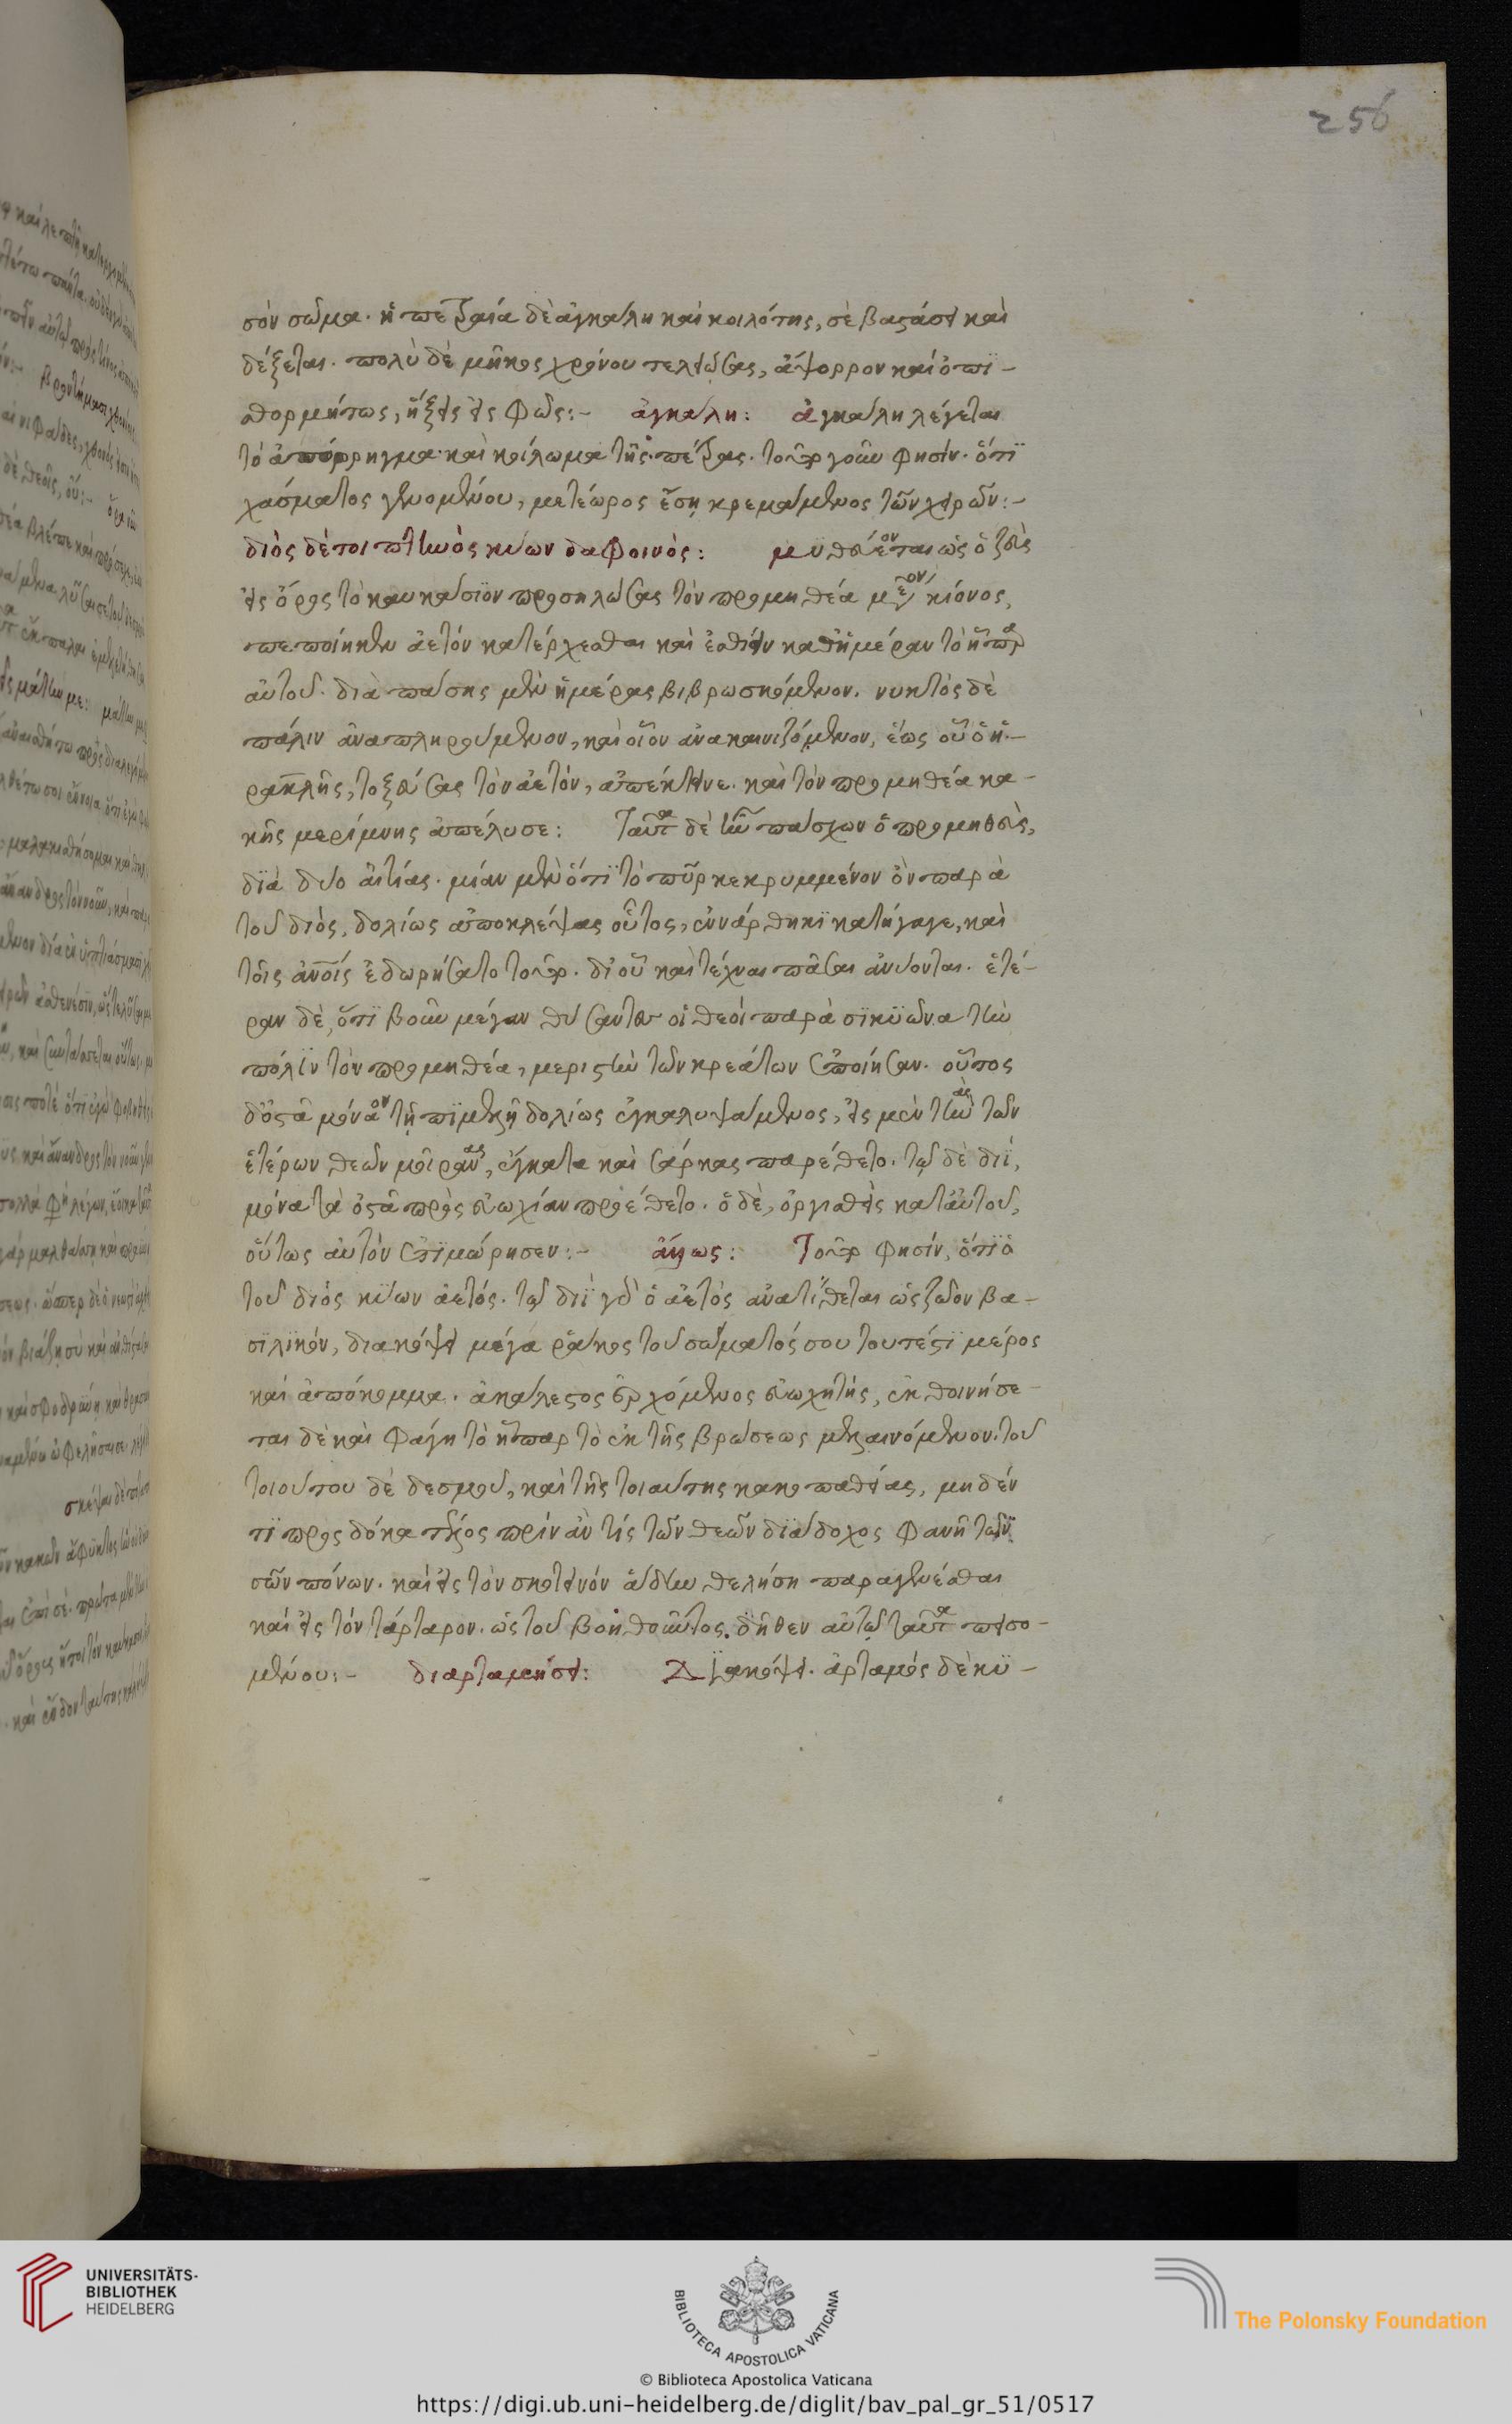 256
σὸν σῶμα. ἡ πετραία δὲ ἀγκάλη καὶ κοιλότης, σὲ βαστάσει καὶ
δέξεται. πολὺ δὲ μῆκος χρόνου τελειώσας, ἄψορρον καὶ ὀπι-
σθορμήτως, ἥξεις εἰς φῶς:- ἀγκάλη: ἀγκάλη λέγεται
τὸ ἀπόρρηγμα καὶ κοίλωμα τῆς πέτρας. τοῦτο γοῦν φησίν. ὅτι
χάσματος γενομένου, μετέωρος ἔσῃ κρεμάμενος τῶν χειρῶν:-
διὸς δέ τοι πτηνὸς κύων δαφοινὸς: μυθεύεται ὡς ὁ ζεὺς
εἰς ὄρος τὸ καυκάσιον προσηλώσας τὸν προμηθέα μέσον κίονος,
πεποίηκεν ἀετὸν κατέρχεσθαι καὶ ἐσθίειν καθημέραν τὸ ἧπαρ
αὐτοῦ. διὰ πάσης μὲν ἡμέρας βιβρωσκόμενον. νυκτὸς δὲ
πάλιν ἀναπληρούμενον, καὶ οἷον ἀνακαινιζόμενον, ἕως οὗ ὁ ἡ-
ρακλῆς, τοξεύσας τὸν ἀετόν, ἀπέκτεινε. καὶ τὸν προμηθέα κα-
κῆς μερίμνης ἀπέλυσε: Ταῦτα δὲ ἦν πάσχων ὁ προμηθεὺς,
διὰ δύο αἰτίας. μίαν μὲν ὅτι τὸ πῦρ κεκρυμμένον ὂν παρὰ
τοῦ διὸς, δολίως ἀποκλέψας οὗτος, ἐν νάρθηκι κατήγαγε, καὶ
τοῖς ἀνοις ἐδωρήσατο τοῦτο. δι οὗ καὶ τέχναι πᾶσαι ἀνύονται. ἑτέ-
ραν δὲ, ὅτι βοῦν μέγαν θύσαντες οἱ θεοὶ παρὰ σικυῶνα τὴν
πόλιν τὸν προμηθέα, μεριστὴν τῶν κρεάτων ἐποίησαν. οὗτος
δ ὀστᾶ μόνα τῇ πιμελῇ δολίως ἐγκαλυψάμενος, εἰς μὲν τὰς τῶν
ἑτέρων θεῶν μοίρας, ἔγκατα καὶ σάρκας παρέθετο. τῷ δὲ διῒ,
μόνα τὰ ὀστᾶ πρὸς εὐωχίαν προέθετο. ὁ δὲ, ὀργισθεὶς κατ αὐτοῦ,
οὕτως αὐτὸν ἐτιμώρησεν:- ἄλλως: Τοῦτο φησίν, ὅτι ὁ
τοῦ διὸς κύων ἀετός. τῷ διῒ γὰρ ὁ ἀετὸς ἀνατίθεται ὡς ζῶον βα-
σιλικόν, διακόψει μέγα ῥάκος τοῦ σώματός σου τουτέστι μέρος
καὶ ἀπόκομμα. ἀκάλεστος ἐρχόμενος εὐωχητής, ἐκθοινήσε-
ται δὲ καὶ φάγῃ τὸ ἧπαρ τὸ ἐκ τῆς βρώσεως μελαινόμενον. τοῦ
τοιούτου δὲ δεσμοῦ, καὶ τῆς τοιαύτης κακοπαθείας, μηδέν
τι προσδόκα τέλος πρὶν ἂν τίς τῶν θεῶν διάδοχος φανῇ τῶν
σῶν πόνων. καὶ εἰς τὸν σκοτεινὸν ἅδην θελήσῃ παραγενέσθαι
καὶ εἰς τὸν τάρταρον. ὡς τοῦ βοηθοῦντος δῆθεν αὐτῷ ταῦτα πεισο-
μένου:- διαρταμήσει: Διακόψει. ἀρταμὸς δὲ κυ-
UNIVERSITÄTS-
BIBLIOTHEK
HEIDELBERG
BIBLIOTECA APOSTOLICA VATICANA
© Biblioteca Apostolica Vaticana
The Polonsky Foundation
https://digi.ub.uni-heidelberg.de/diglit/bav_pal_gr_51/0517